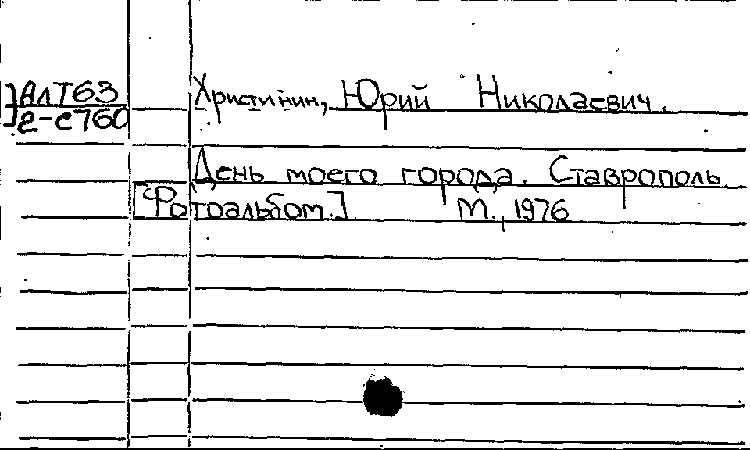 АлТ63
г-с760
Христинин, Юрий Николаевич.
День моего города. Ставрополь.
[Фотоальбом.] М., 1976